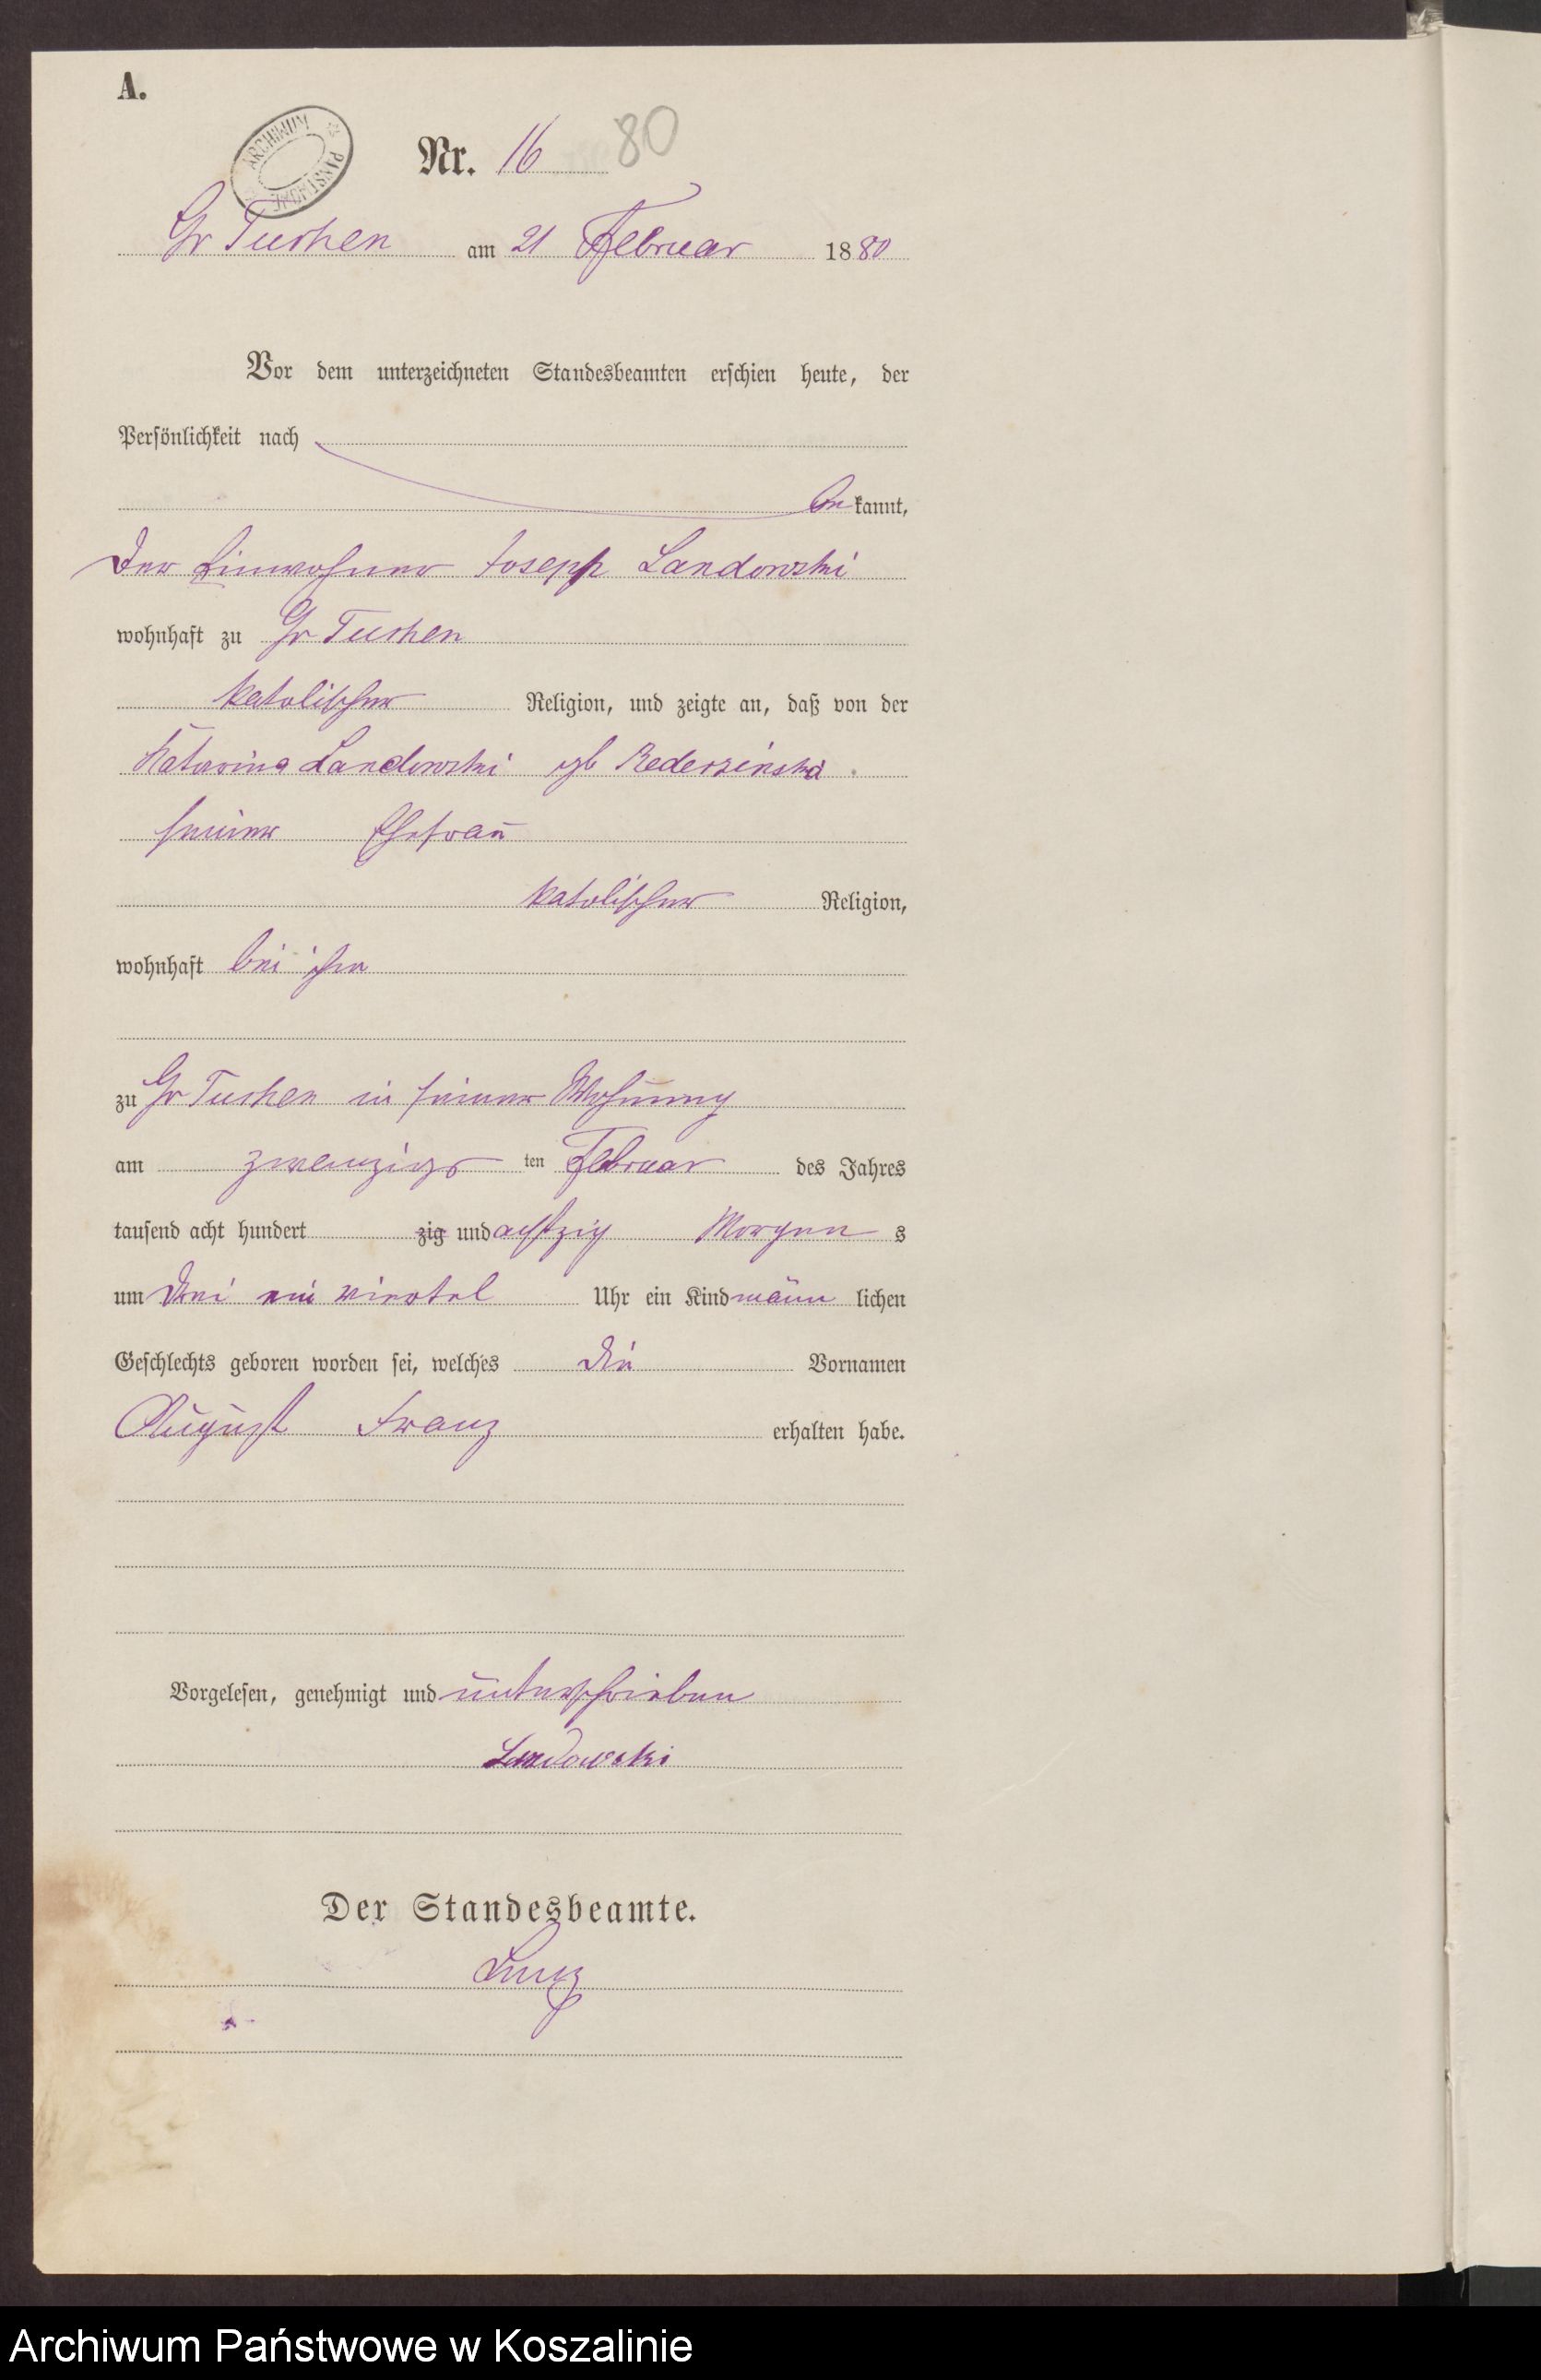 A.
ARCHIWUM PAŃSTWOWE
Nr. 16 80
Gr Tuchen am 21 Februar 1880
Vor dem unterzeichneten Standesbeamten erschien heute, der
Persönlichkeit nach
bekannt,
Der Einwohner Josepp Landowski
wohnhaft zu Gr Tuchen
katolischer Religion, und zeigte an, daß von der
Katarina Landowski gb Rederzinska
seiner Ehefrau
katolischer Religion,
wohnhaft bei ihm
zu Gr Tuchen in seiner Wohnung
am zwanzigs ten Februar des Jahres
tausend acht hundert zig und achtzig Morgen s
um drei ein viertel Uhr ein Kind männ lichen
Geschlechts geboren worden sei, welches die Vornamen
August Franz erhalten habe.
Vorgelesen, genehmigt und unterschrieben
Landowski
Der Standesbeamte.
Archiwum Państwowe w Koszalinie